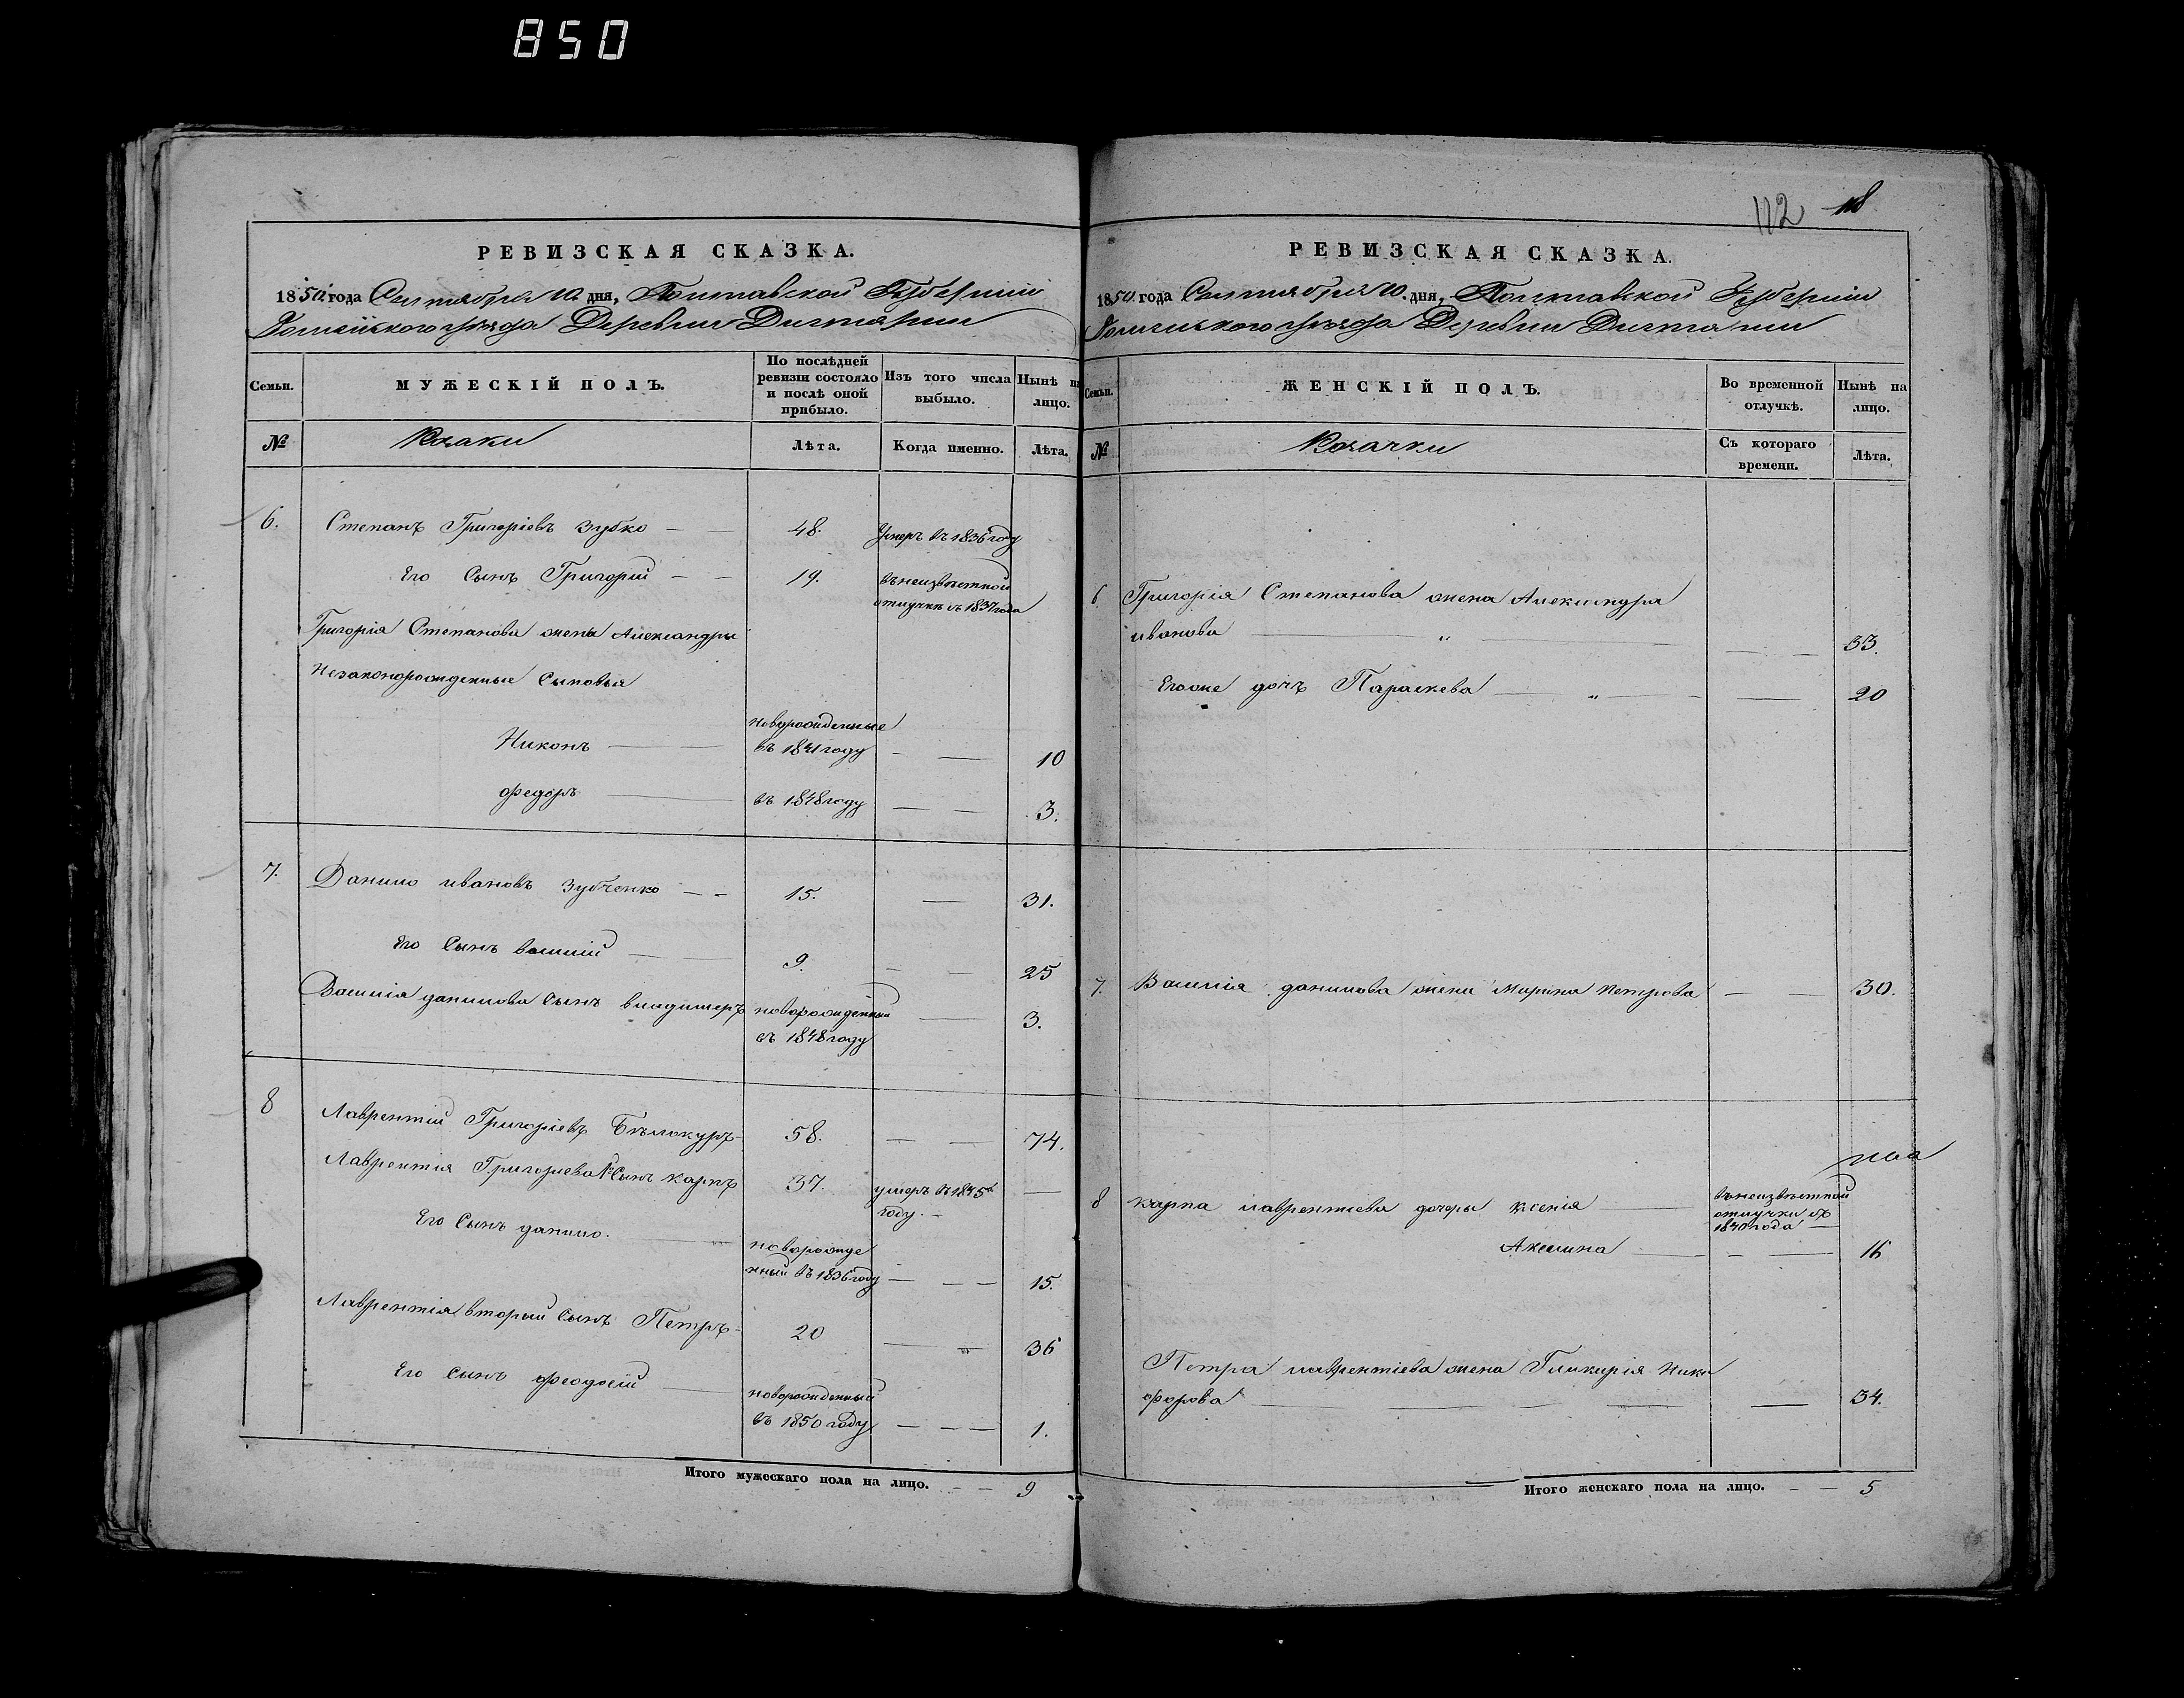 850
112 118
РЕВИЗСКАЯ СКАЗКА.
1850 года Сентября 10 дня, Полтавской Губерніи
Роменского уѣзда Деревни Дигтярни
Семьи. МУЖЕСКІЙ ПОЛЪ. По послѣдней ревизіи состояло и послѣ оной прибыло. Изъ того числа выбыло. Нынѣ на лицо.
№ Козаки Лѣта. Когда именно. Лѣта.
6. Степанъ Григоріевъ Зубко 48. Умеръ въ 1836 году
Его Сынъ Григорій 19. въ неизвѣстной
отлучкѣ съ 1837 года
Григорія Степанова жены Александры
Незаконорожденные Сыновья
Никонъ новорожденные
въ 1841 году 10
Федоръ въ 1848 году 3.
7. Данило ивановъ Зубченко 15. 31.
Его Сынъ василій 9. 25
Василія данилова Сынъ владимеръ новорожденный
въ 1848 году 3.
8 Лаврентій Григоріевъ Бѣлокуръ 58. 74.
Лаврентія Григориева 1й Сынъ карпъ 37. умеръ въ 1845
году.
Его Сынъ данило. новорожде
нный въ 1836 году 15.
Лаврентія вторый Сынъ Петръ 20 36
Его Сынъ Феодосій новорожденный
въ 1850 году 1.
Итого мужескаго пола на лицо. 9
РЕВИЗСКАЯ СКАЗКА.
1850 года Сентября 10. дня, Полтавской Губерніи
Роменского уѣзда Деревни Дигтярни
Семьи. ЖЕНСКІЙ ПОЛЪ. Во временной отлучкѣ. Нынѣ на лицо.
№ Козачки Съ котораго времени. Лѣта.
6 Григорія Степанова жена Александра
иванова " 33.
Егоже дочъ Параскева " 20
7. Василія данилова жена Марина Петрова 30.
8 карпа лаврентіева дочеры Ксенія въ неизвѣстной
отлучки съ
1840 года
Акилина 16
Петра лаврентіева жена Гликерія Ники
форова 34.
Итого женскаго пола на лицо. 5